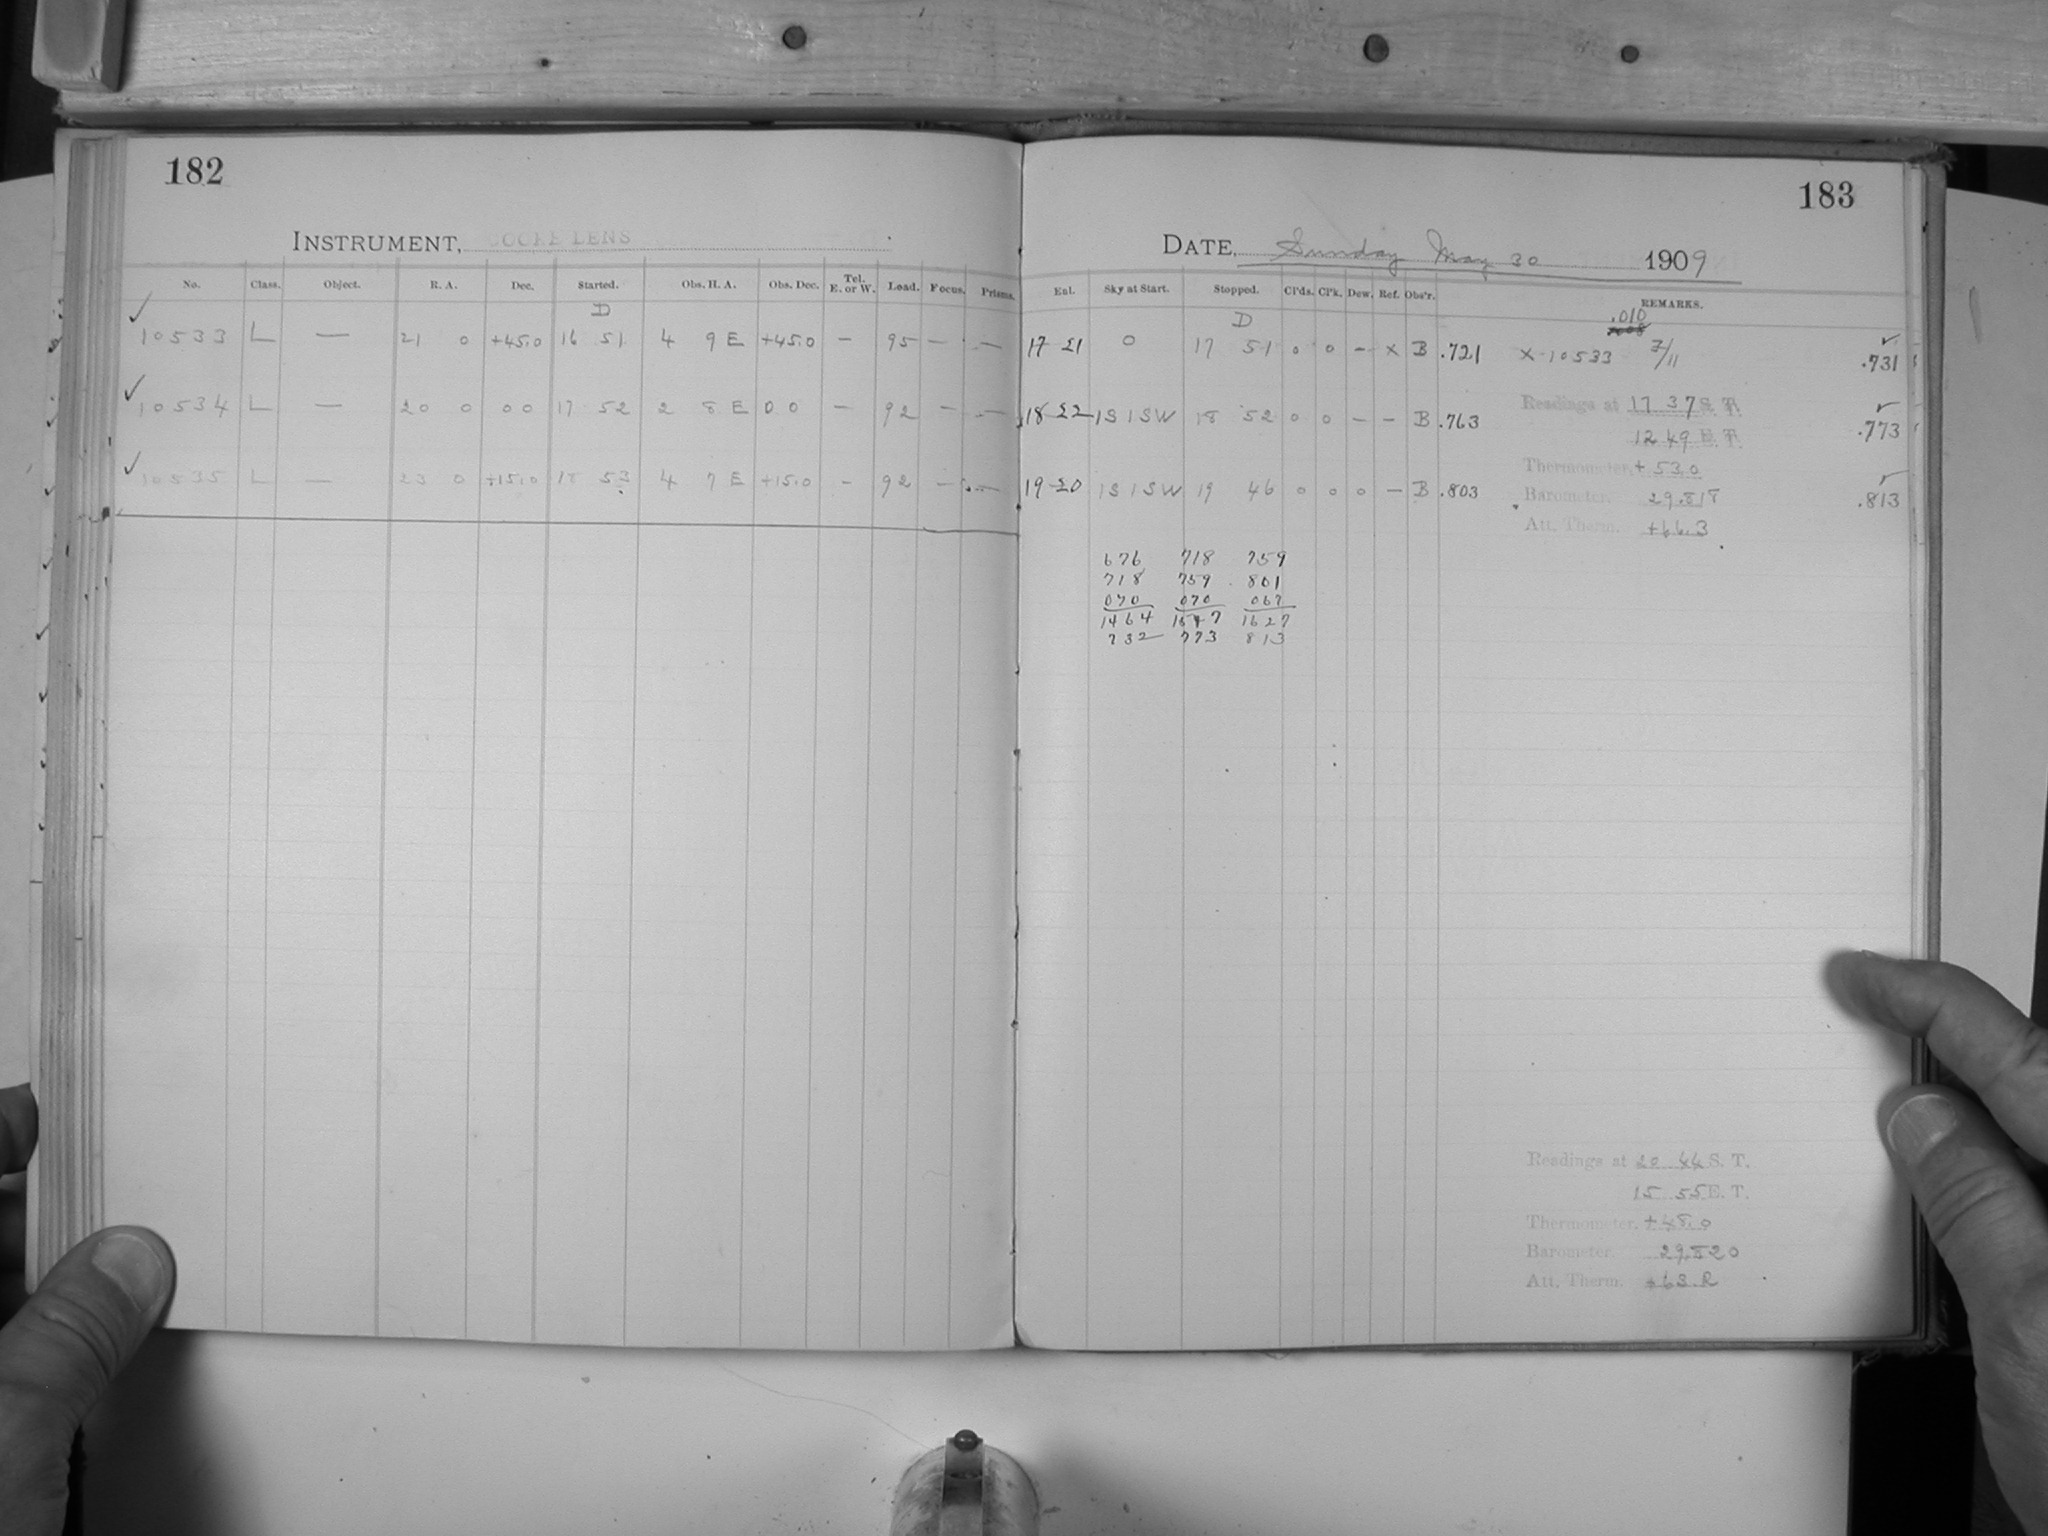 182
INSTRUMENT, COOKE LENS
No. Class. Object. R. A. Dec. Started. Obs. H. A. Obs. Dec. Tel. E. or W. Load. Focus. Prisms.
D
10533 L — 21 0 +45.0 16 51 4 9 E +45.0 — 95 — —
10534 L — 20 0 0 0 17 52 2 8 E 0 0 — 92 — —
10535 L — 23 0 +15.0 18 53 4 7 E +15.0 — 92 — —
183
DATE, Sunday May 30 1909
Enl. Sky at Start. Stopped. Cl'ds. Cl'k. Dew. Ref. Obs'r. REMARKS.
D .010
17 21 0 17 51 0 0 — X B .721 X-10533 .731
18 22 1S 1SW 18 52 0 0 — — B .763 Readings at 17 37 S. T. .773
12 49 E. T.
Thermometer. + 53.0
19 20 1S 1SW 19 46 0 0 0 — B .803 Barometer. 29.818 .813
Att. Therm. +66.3
676 718 759
718 759 801
070 070 067
1464 1547 1627
732 773 813
Readings at 20 44 S. T.
15 55 E. T.
Thermometer. +48.0
Barometer. 29.820
Att. Therm. +63.